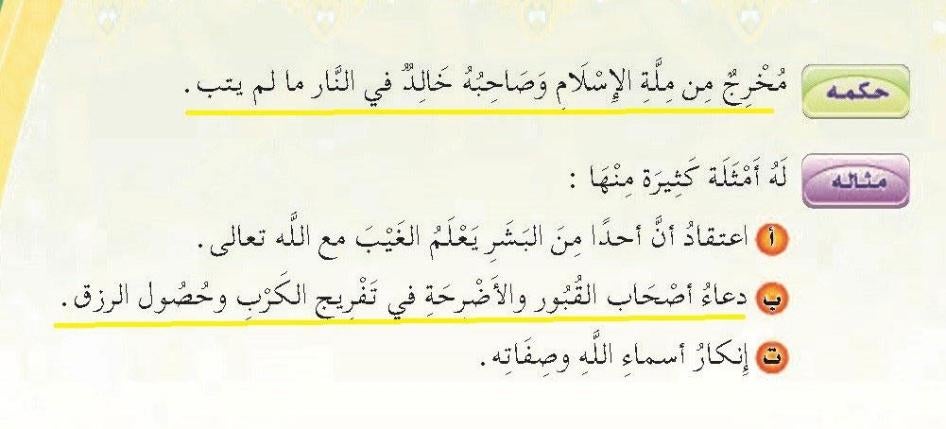 حكمه مُخْرِجٌ مِن مِلَّةِ الإِسْلَامِ وَصَاحِبُهُ خَالِدٌ في النَّار ما لم يتب .
مثاله لَهُ أَمْثَلَة كَثِيرَة مِنْهَا :
أ اعتقادُ أنَّ أحدًا مِنَ البَشَرِ يَعْلَمُ الغَيْبَ مع اللَّه تعالى .
ب دعاءُ أصْحَاب القُبُور والأَضْرِحَةِ في تَفْرِيج الكَرْبِ وحُصُول الرزق .
ت إِنكارُ أسماءِ اللَّهِ وصِفَاتِه .